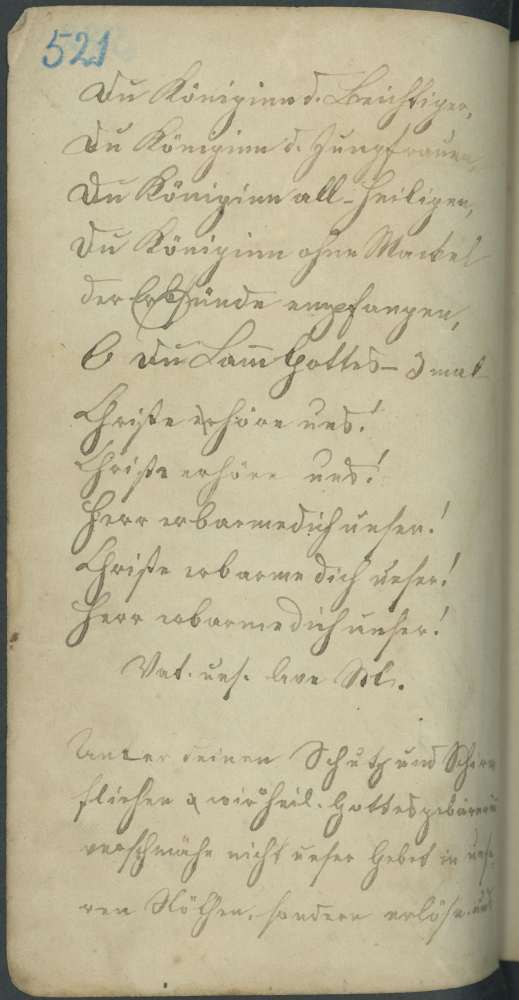 521
Du Königinn d. Beichtiger,
Du Königinn d. Jungfrauen,
Du Königinn all-Heiligen,
Du Königinn ohne Mackel
der Erbsünde empfangen,
O Du Lam̄ Gottes – 3 mal
Christe erhöre uns!
Christe erhöre uns!
Herr erbarme dich unser!
Christe erbarme dich unser!
Herr erbarme dich unser!
Vat. uns. Ave
Unter deinen Schutz und Schirm
fliehen wir heil. Gottesgebärerin
verschmähe nicht unser Gebet in unse-
ren Nöthen, sondern erlöse uns